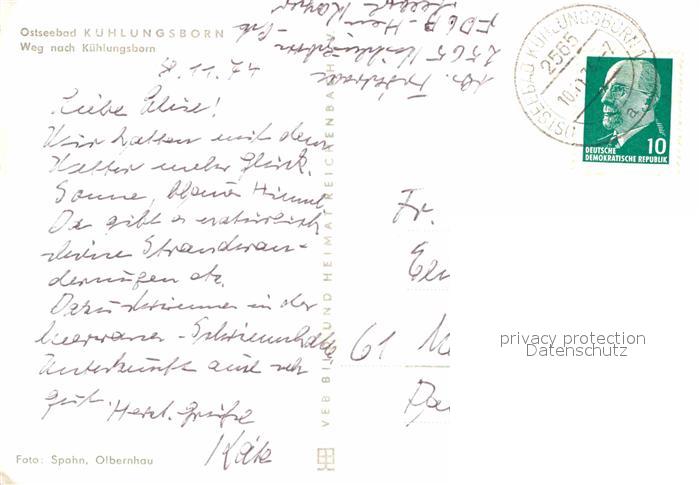 Ostseebad KÜHLUNGSBORN
Weg nach Kühlungsborn
8.11.74
Liebe Elise!
Wir hatten mit dem
Wetter mehr Glück.
Sonne, blauer Himmel
Da gibt es natürlich
kleine Strandwan-
derungen etc.
Dazu schwimmen in der
Meerwasser-Schwimmhalle,
Unterkunft auch sehr
gut.
Herzl. Grüße
Käte
Foto: Spahn, Olbernhau
VEB BILD UND HEIMAT REICHENBACH
FDGB-Heim
2565 Kühlungsborn
OSTSEEBAD KÜHLUNGSBORN 1
2565
10.11.74-7
a
10
DEUTSCHE
DEMOKRATISCHE REPUBLIK
Fr.
61
privacy protection
Datenschutz